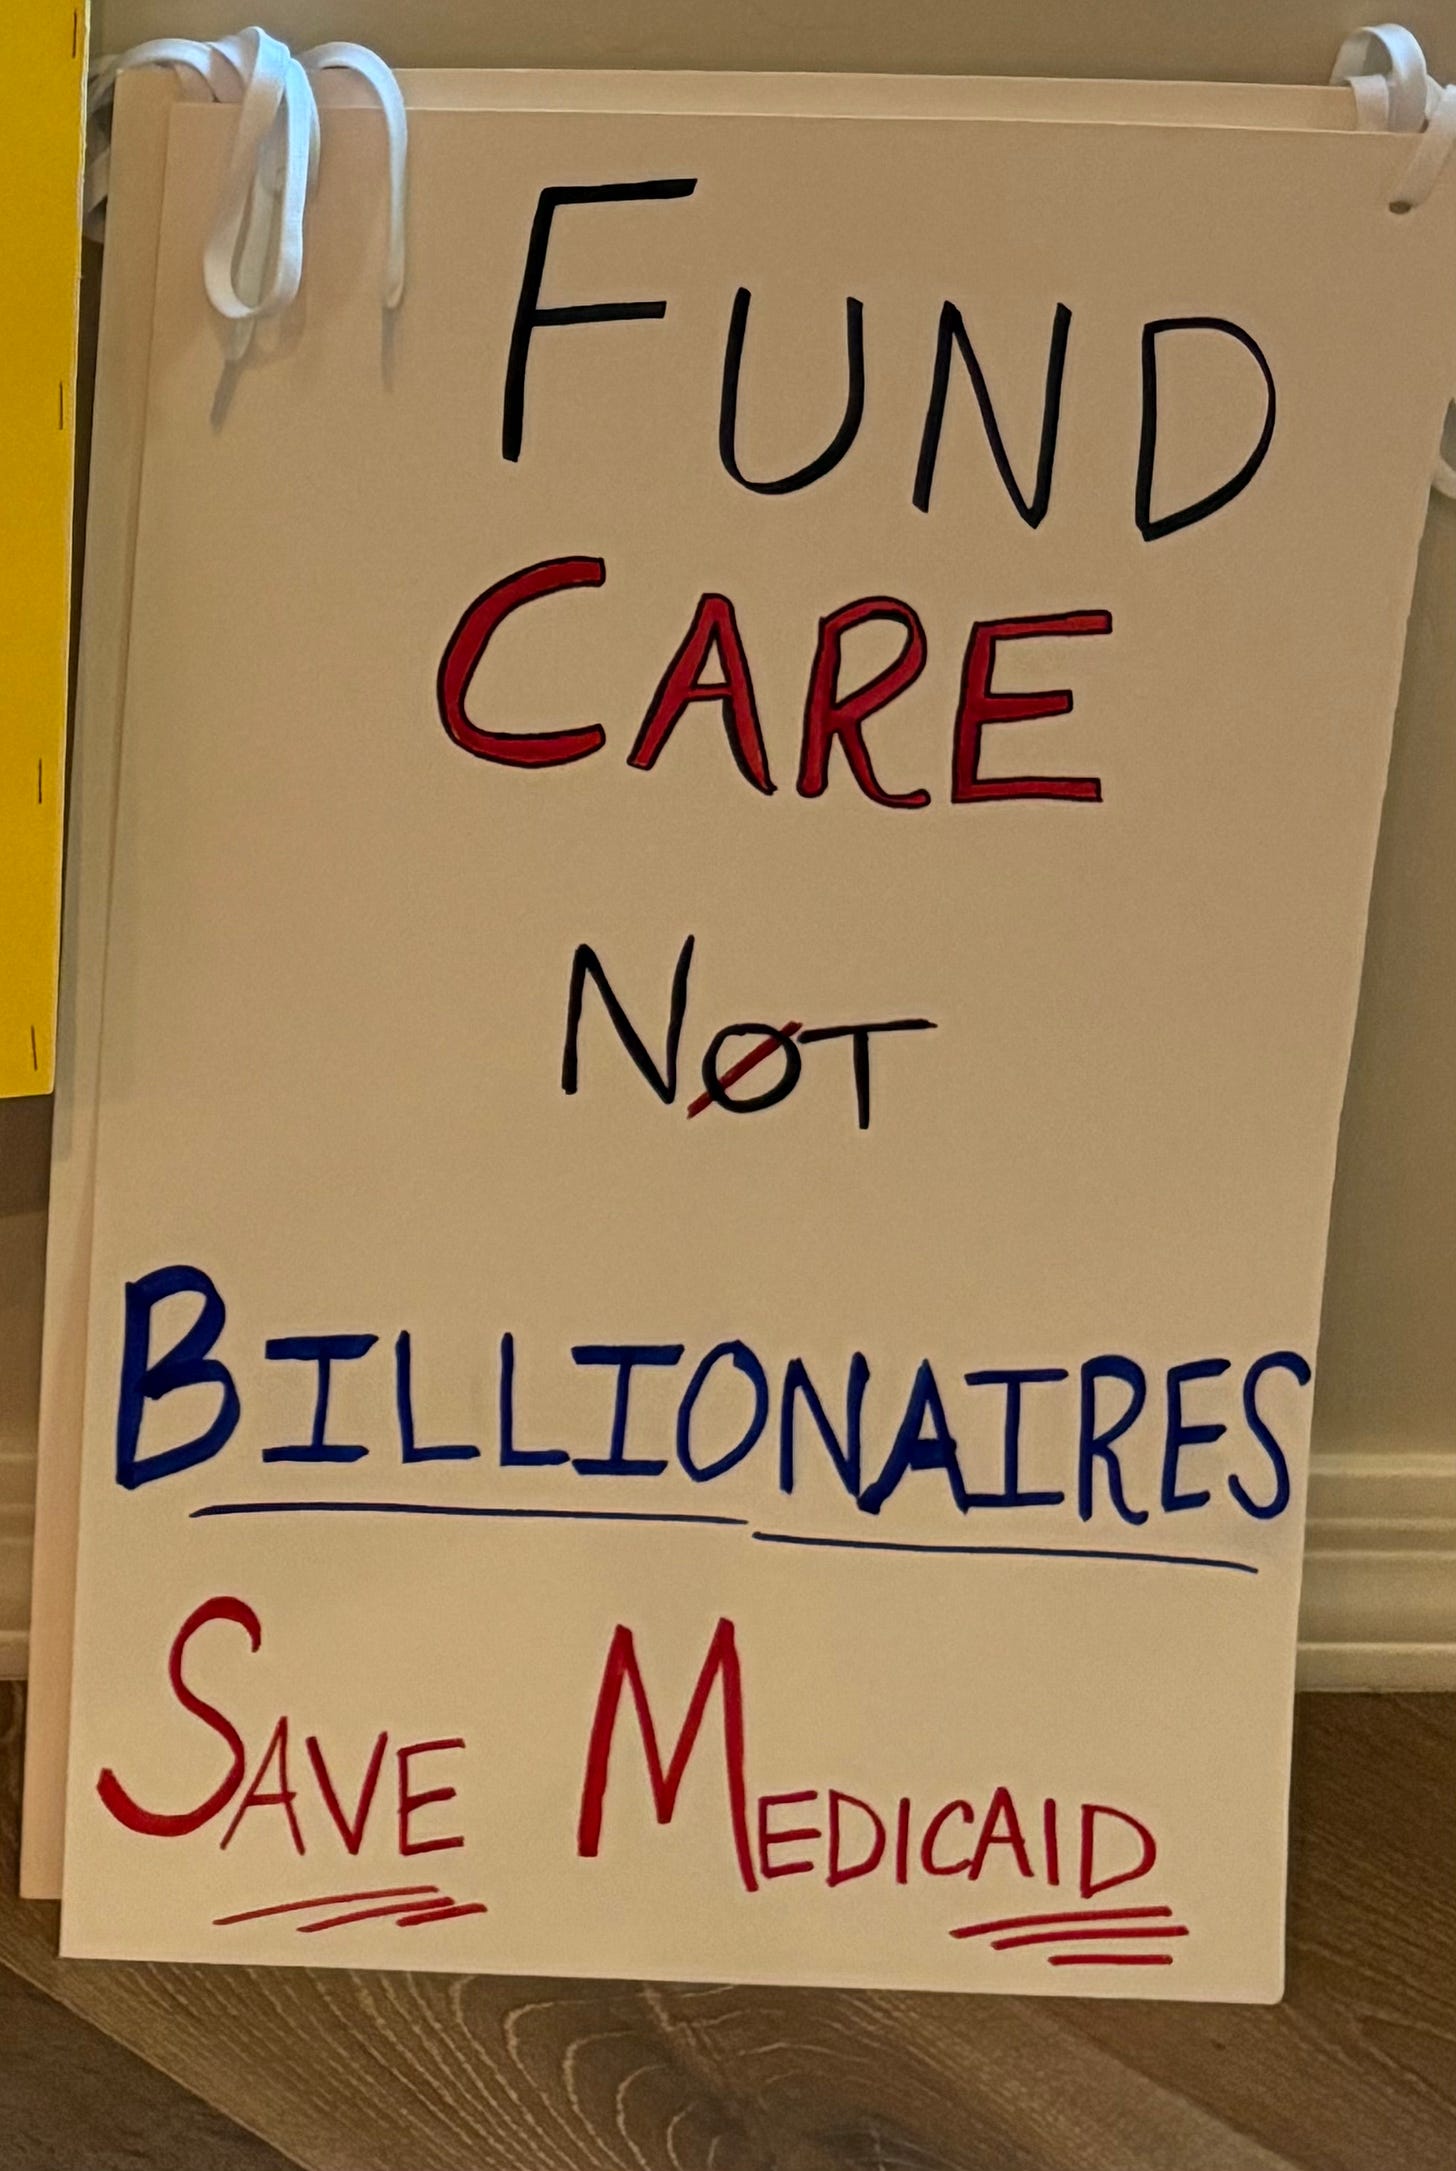 FUND
CARE
NOT
BILLIONAIRES
SAVE MEDICAID